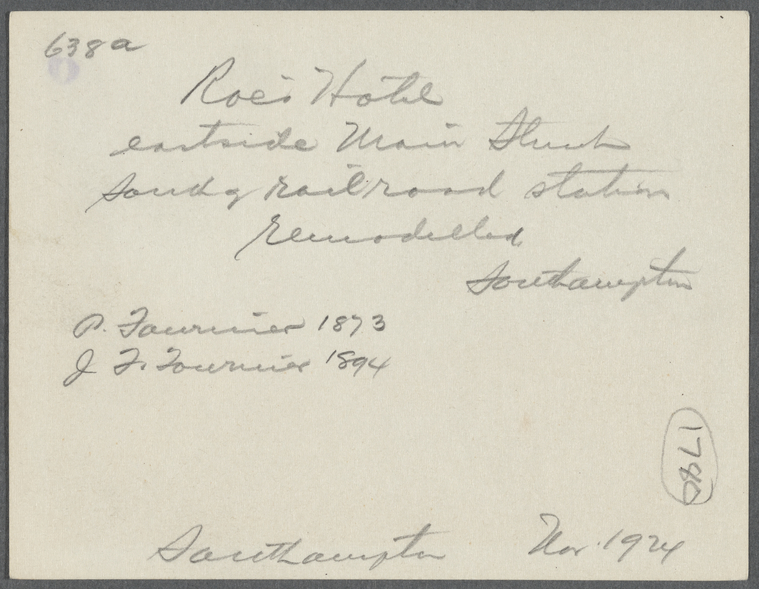 638a
Roe's Hotel
eastside Main Street
South of railroad station
remodelled
Southampton
P. Fournier 1873
J. F. Fournier 1894
1784
Southampton Nov. 1924